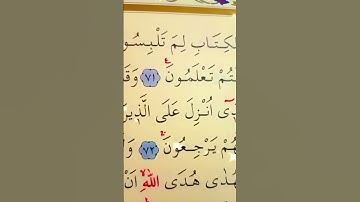 لْكِتَابِ لِمَ تَلْبِسُو
نْتُمْ تَعْلَمُونَ ﴿٧١﴾ وَقَ
ذِٓى اُنْزِلَ عَلَى الَّذِينَ
هُمْ يَرْجِعُونَ ﴿٧٢﴾ وَلَ
هُدٰى هُدَى اللّٰهِ اَنْ